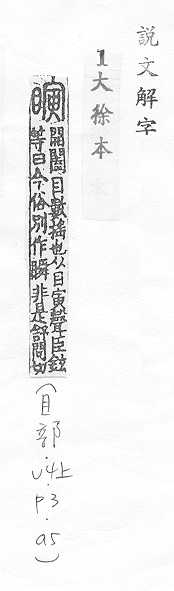 說文解字
1大徐本
瞚
開闔目數搖也从目寅聲臣鉉
等曰今俗別作瞬非是舒閏切
(目部.v4上.P3.a5)